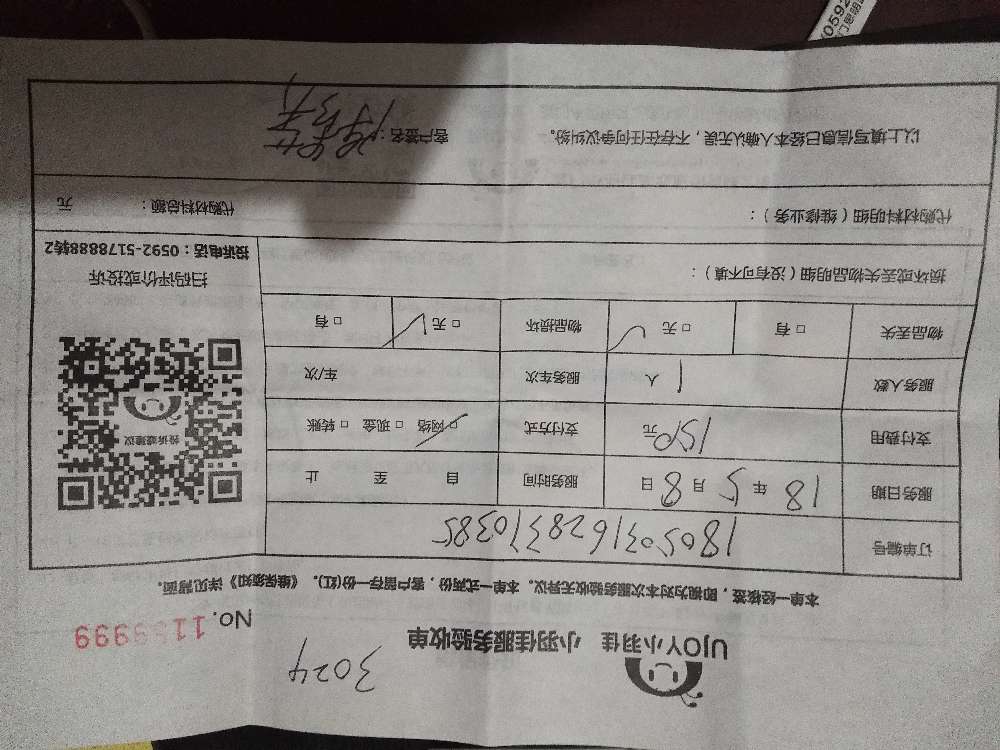 3024
UJOY小羽佳 小羽佳服务验收单
No. 1159999
本单一经核签，即视为对本次服务验收无异议。本单一式两份，客户留存一份(红)。《维保须知》详见背面。
订单编号 180503162837 0385
服务日期 18 年 5 月 8 日 服务时间 自 至 止
支付费用 150 元 支付方式 □ 网络 □ 现金 □ 转账
服务人数 1 人 服务车次 车/次
物品丢失 □ 有 □ 无 物品损坏 □ 无 □ 有
投诉或建议
扫码评价或投诉
投诉电话：0592-5178888转2
损坏或丢失物品明细（没有可不填）：
代购材料明细（维修业务）： 代购材料总额： 元
以上填写信息已经本人确认无误，不存在任何争议纠纷。 客户签名：
0592